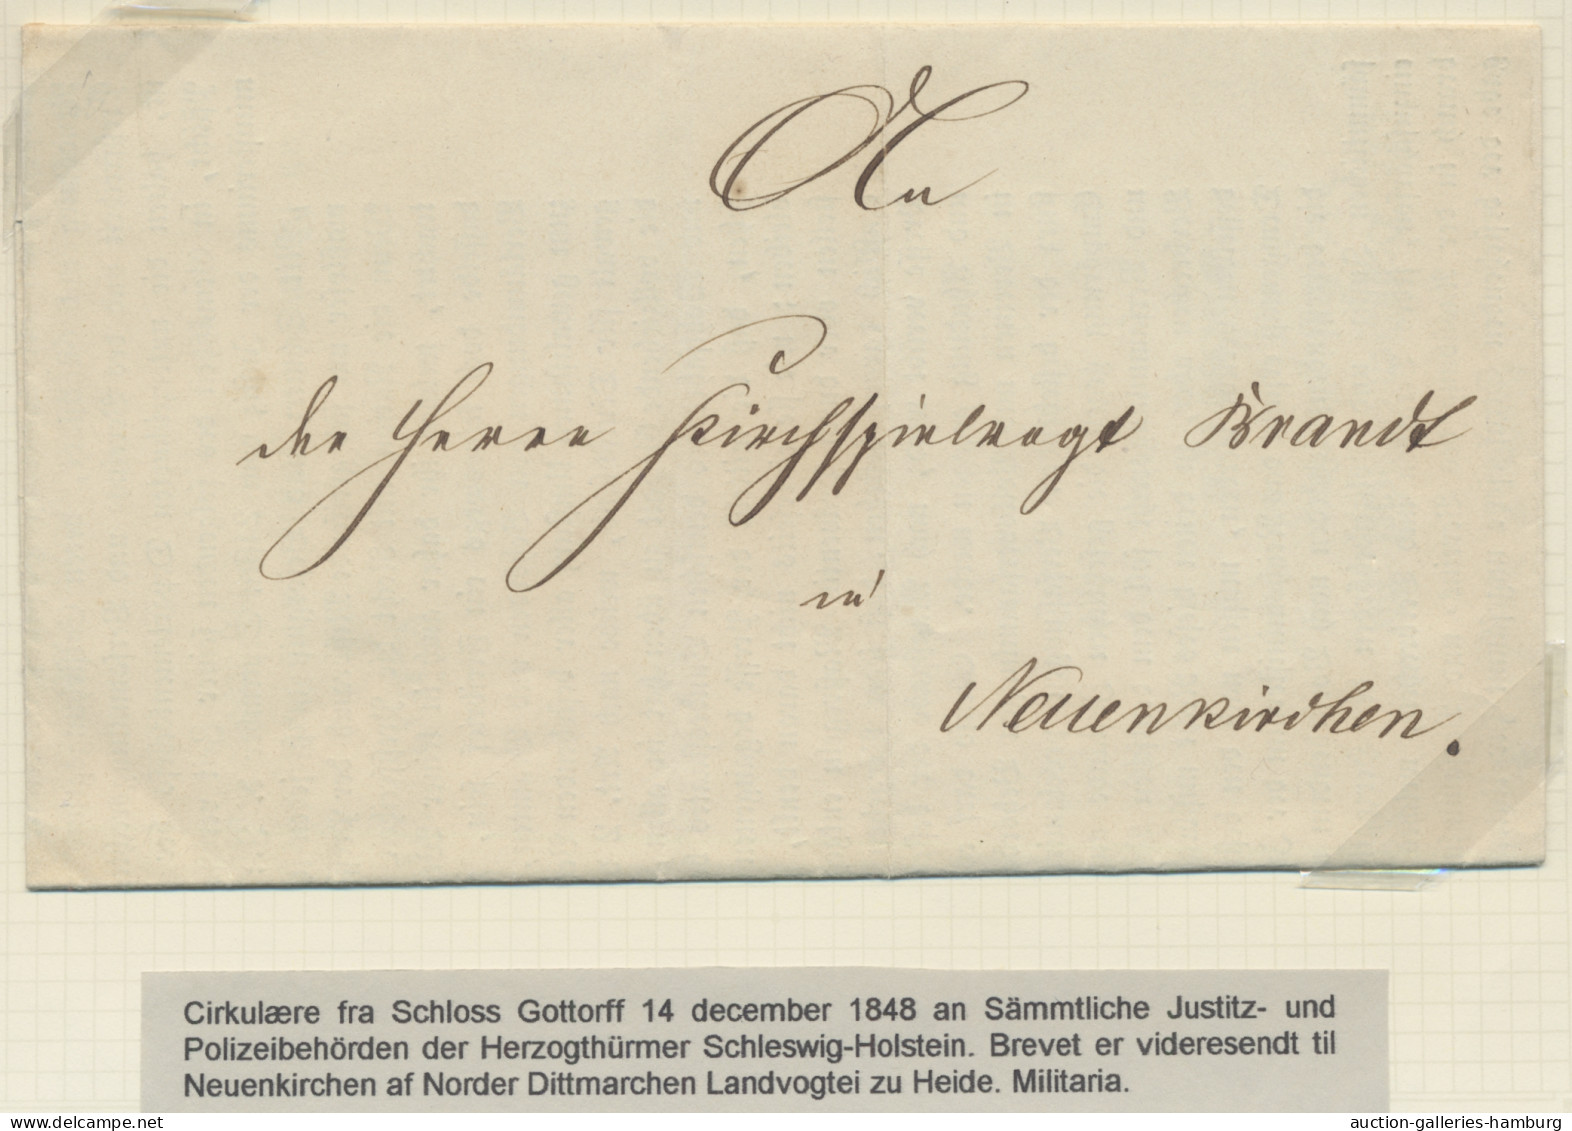 An
den Herrn Kirchspielvogt Brandt
in
Neuenkirchen.
Cirkulære fra Schloss Gottorff 14 december 1848 an Sämmtliche Justitz- und
Polizeibehörden der Herzogthürmer Schleswig-Holstein. Brevet er videresendt til
Neuenkirchen af Norder Dittmarchen Landvogtei zu Heide. Militaria.
auction-galleries-hamburg